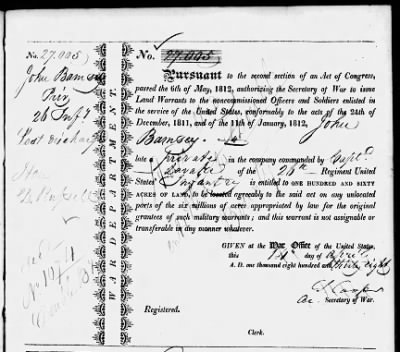 No. 27.005
John Bamsey
Priv
26 Infy
No. 27.005
Pursuant to the second section of an Act of Congress,
passed the 6th of May, 1812, authorizing the Secretary of War to issue
Land Warrants to the noncommissioned Officers and Soldiers enlisted in
the service of the United States, conformably to the acts of the 24th of
December, 1811, and of the 11th of January, 1812, John
Bamsey
late a Private in the company commanded by Capt.
of the 26th Regiment United
States Infantry is entitled to ONE HUNDRED AND SIXTY
ACRES OF LAND, to be located agreeably to the said act on any unlocated
parts of the six millions of acres appropriated by law for the original
grantees of such military warrants; and this warrant is not assignable or
transferable in any manner whatever.
GIVEN at the War Office of the United States,
this day of April
A. D. one thousand eight hundred and thirty eight
Secretary of War.
Registered.
Clerk.
WAR DEPARTMENT.